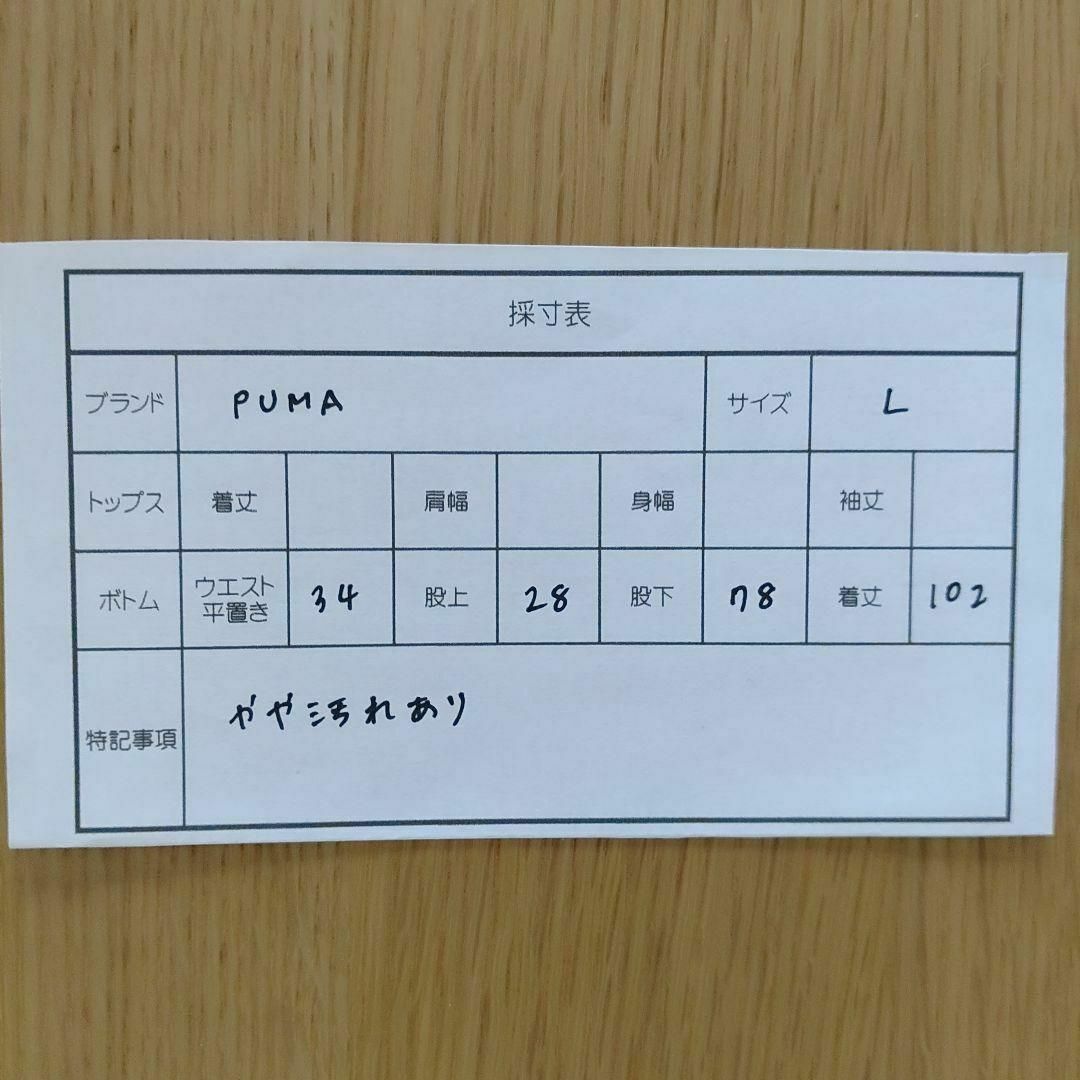 採寸表
ブランド PUMA サイズ L
トップス 着丈 肩幅 身幅 袖丈
ボトム ウエスト 34 股上 28 股下 78 着丈 102
平置き
特記事項 やや汚れあり